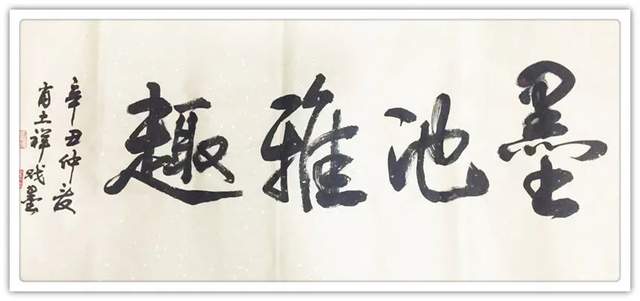 墨池雅趣
辛丑仲夏
肖玉祥戏墨